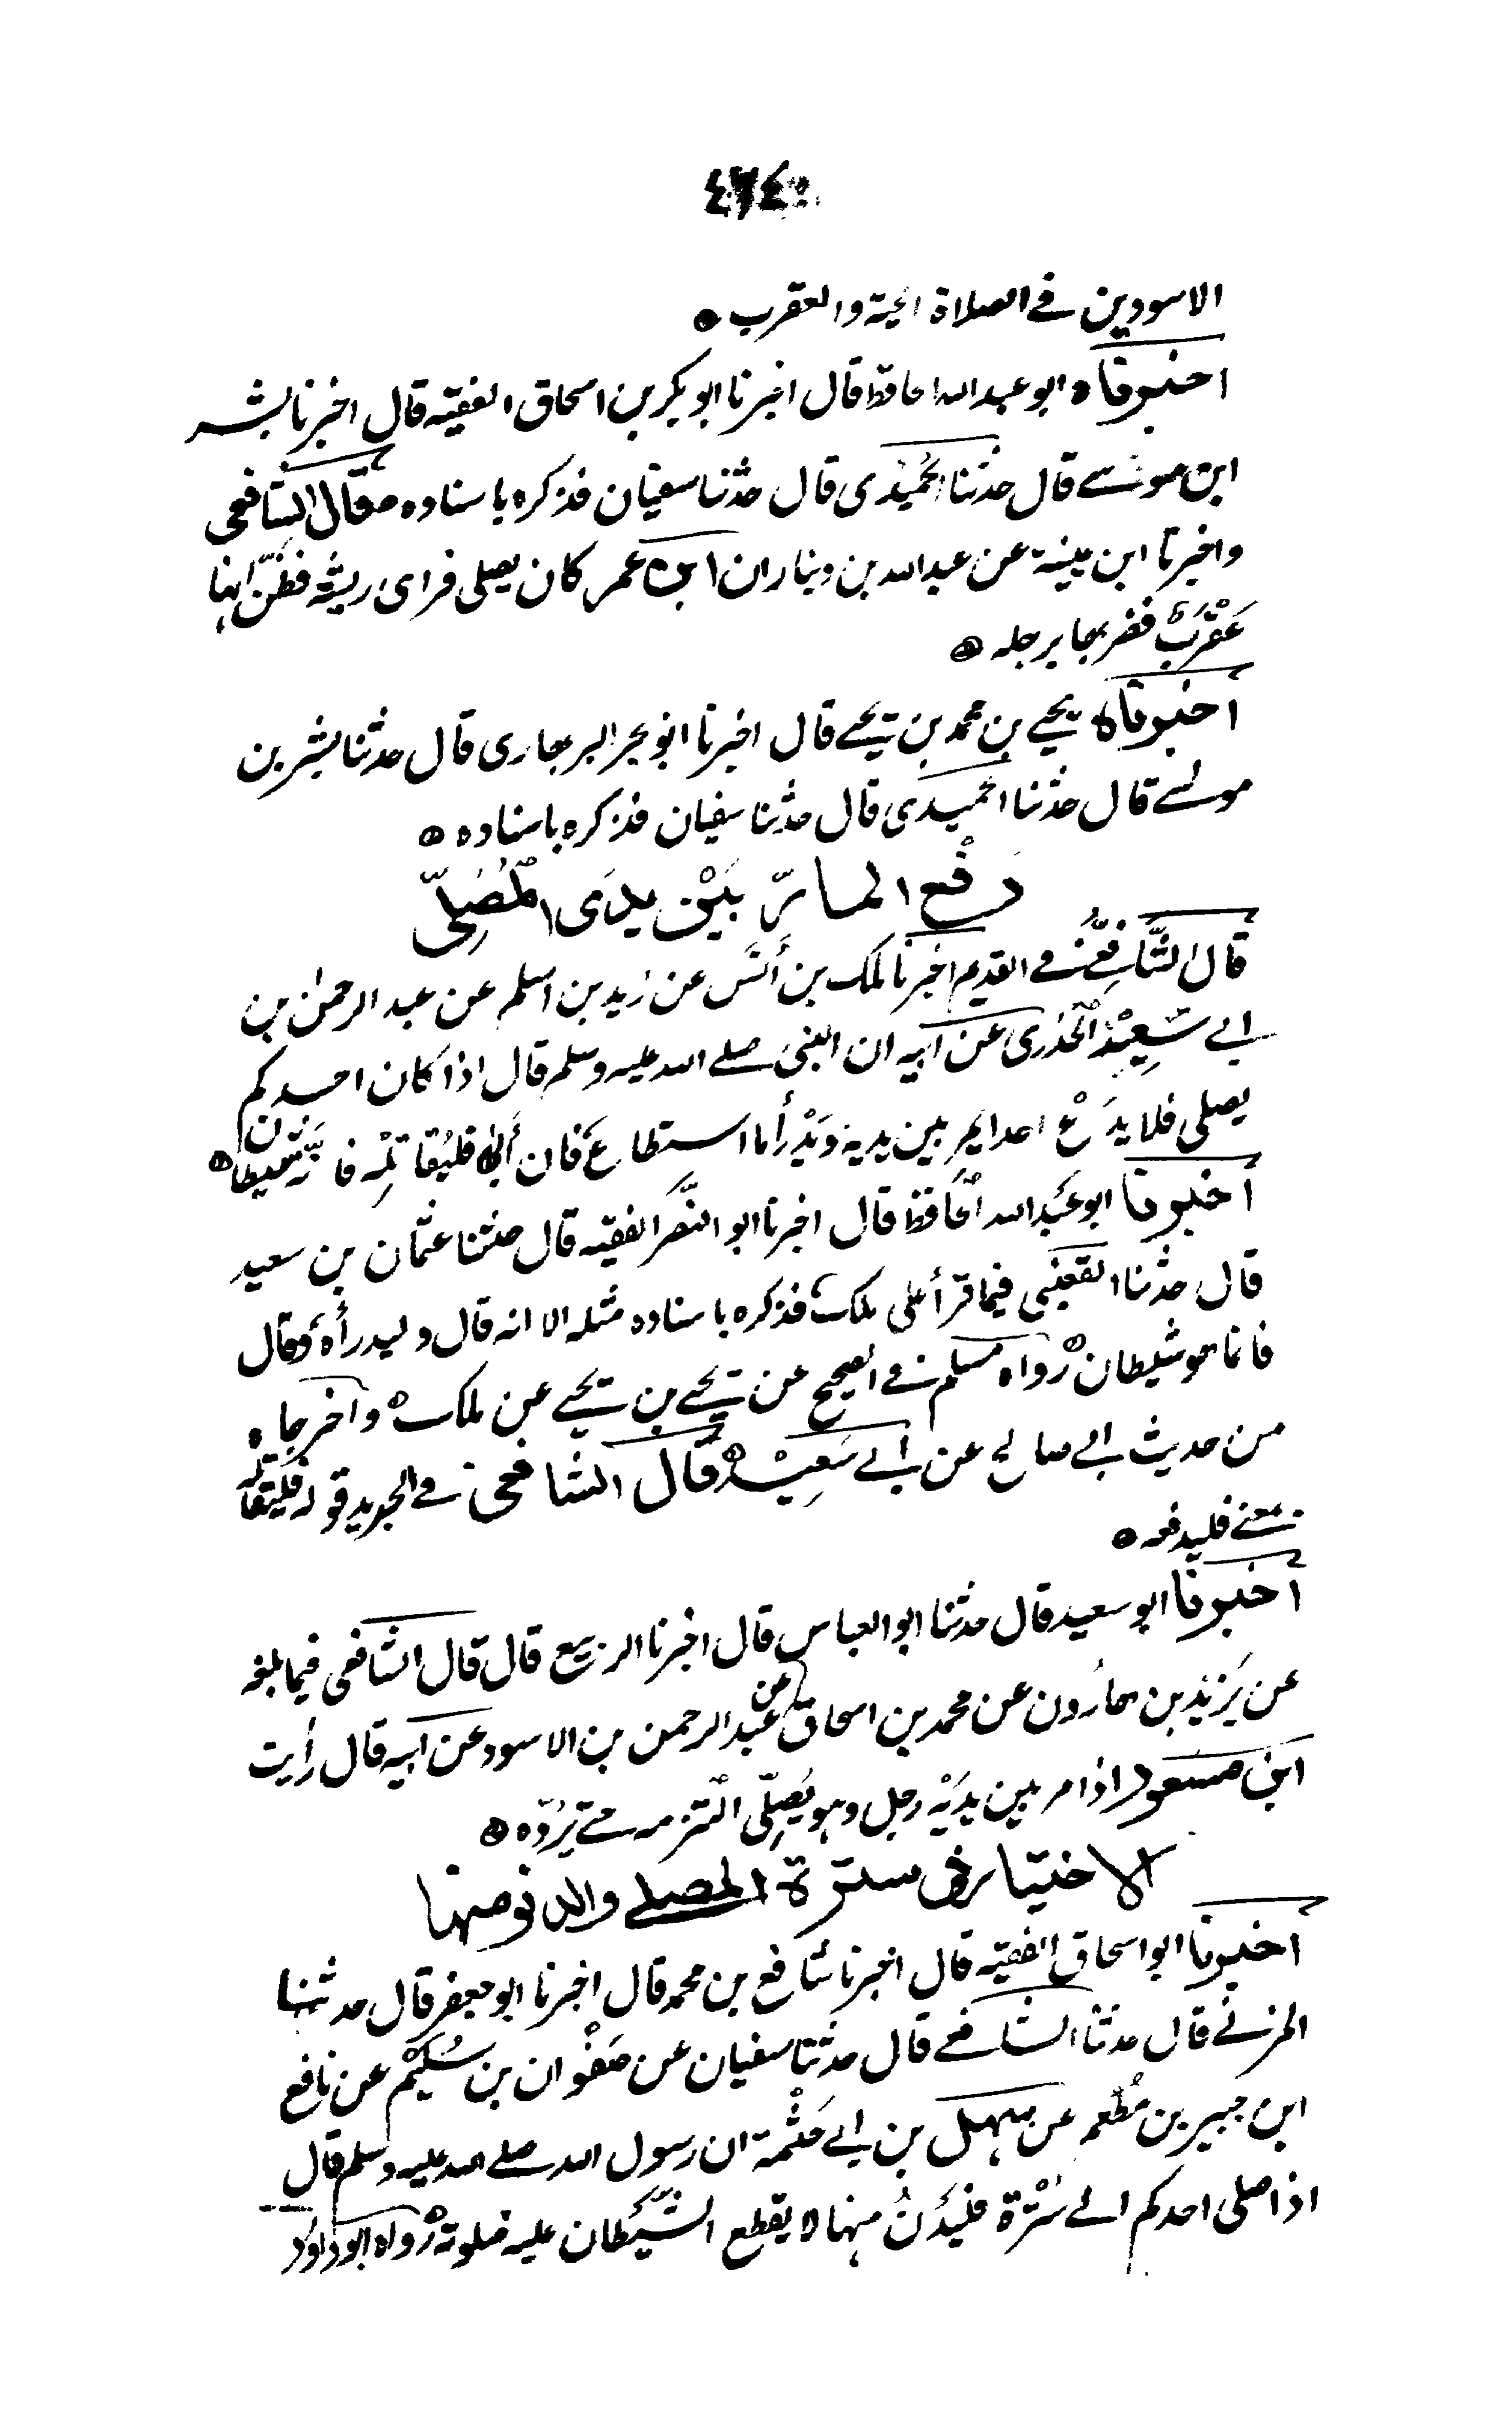 الاسودين في الصلاة الحية والعقرب ه
اخبرناه ابو عبد الله الحافظ قال اخبرنا ابو بكر بن اسحاق الفقيه قال اخبرنا بشر
ابن موسى قال حدثنا الحُمَيْدى قال حدثنا سفيان فذكره باسناده ه قال الشافعى
واخبرنا ابن عيينة عن عبد الله بن دينار ان ابن عمر كان يصلى فراى ريشة فظنّ انها
عَقْرَبٌ فضربها برجله ه
اخبرناه يحيى بن محمد بن يحيى قال اخبرنا ابو بحر البربهارى قال حدثنا بشر بن
موسى قال حدثنا الحميدى قال حدثنا سفيان فذكره باسناده ه
دَفْع المارّ بَيْن يدَى المُصَلِّى
قال الشَّافِعىُّ فى القديم اخبرنا ملك بن أنَس عن زيد بن اسلم عن عبد الرحمٰن بن
ابى سَعِيْدٍ الْخُدْرى عن ابيه ان النبى صلى الله عليه وسلم قال اذا كان احدكم
يصلى فلا يدَعْ احدا يمر بين يديه وَلْيَدْرأه ما استطاع فان أبى فليُقاتِلْه فانَّه شيطان ه
اخبرنا ابو عَبْد الله الْحافظ قال اخبرنا ابو النَّضر الفقيه قال حدثنا عثمان بن سعيد
قال حدثنا القعنبى فيما قرأ على ملك فذكره باسناده مثله الا انه قال وليدرأه وقال
فانما هو شيطان ه رواه مسلم فى الصحيح عن يحيى بن يحيى عن ملك ه واخرجاه
من حديث ابى صالح عن ابى سَعِيْد ه قال الشافعى فى الجديد قوله فليقاتله
يعنى فليدفعه ه
اخبرنا ابو سعيد قال حدثنا ابو العباس قال اخبرنا الربيع قال قال الشافعى فيما بلغه
عن يَزِيْد بن هارُون عن محمد بن اسحاق عن عبد الرحمن بن الاسود عن ابيه قال رأيت
ابن مَسْعود اذا مر بين يَدَيْه رجل وهو يُصَلِّى الْتزمه حتى يَرُدّه ه
الاختيار فى سترة المصلى والدنو منها
اخبرنا ابو اسحاق الفقيه قال اخبرنا شافع بن محمد قال اخبرنا ابو جعفر قال حدثنا
المزنى قال حدثنا الشافعى قال حدثنا سفيان عن صَفْوان بن سُلَيْم عن نافع
ابن جبير بن مُطْعم عن سهل بن ابى حَثْمة ان رسول الله صلى الله عليه وسلم قال
اذا صلى احدكم الى سُتْرة فليَدْنُ منها لا يقطع الشَّيْطان عليه صلوته ه رواه ابو داود